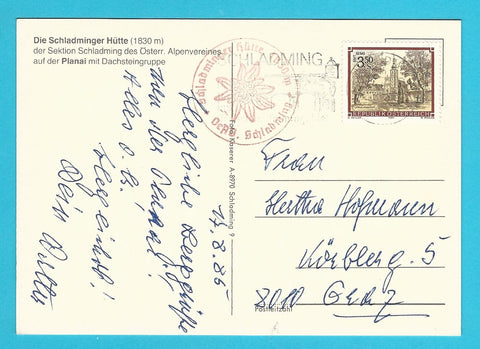 Die Schladminger Hütte (1830 m)
der Sektion Schladming des Österr. Alpenvereines
auf der Planai mit Dachsteingruppe
Schladminger Hütte
OeAV. Schladming
SCHLADMING
3.50
REPUBLIK ÖSTERREICH
14.8.85
Herzliche Berggrüße
von der
Alles o. k.!
Dein
Foto Kaserer A-8970 Schladming 9
Frau
Hertha Hofmann
Körblerg. 5
8010 Graz
Postleitzahl